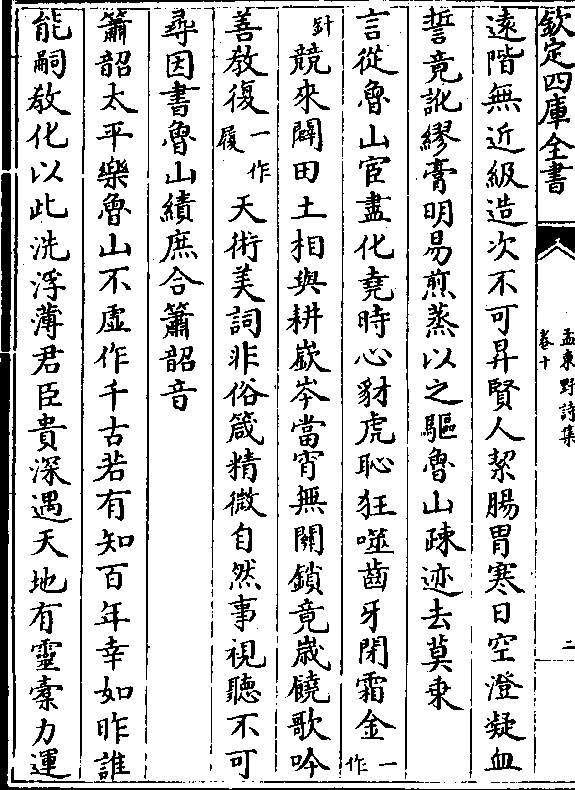 欽定四庫全書
孟東野詩集
卷十
二
遠階無近級造次不可昇賢人絜腸胃寒日空澄凝血
誓竟訛繆膏明易煎蒸以之驅魯山疎迹去莫乗
言從魯山宦盡化堯時心豺虎恥狂噬齒牙閉霜金一作
針競來闢田土相與耕嶔岑當宵無關鎖竟歲饒歌吟
善教復一作履天術美詞非俗箴精微自然事視聽不可
尋因書魯山績庶合簫韶音
簫韶太平樂魯山不虛作千古若有知百年幸如昨誰
能嗣教化以此洗浮薄君臣貴深遇天地有靈橐力運